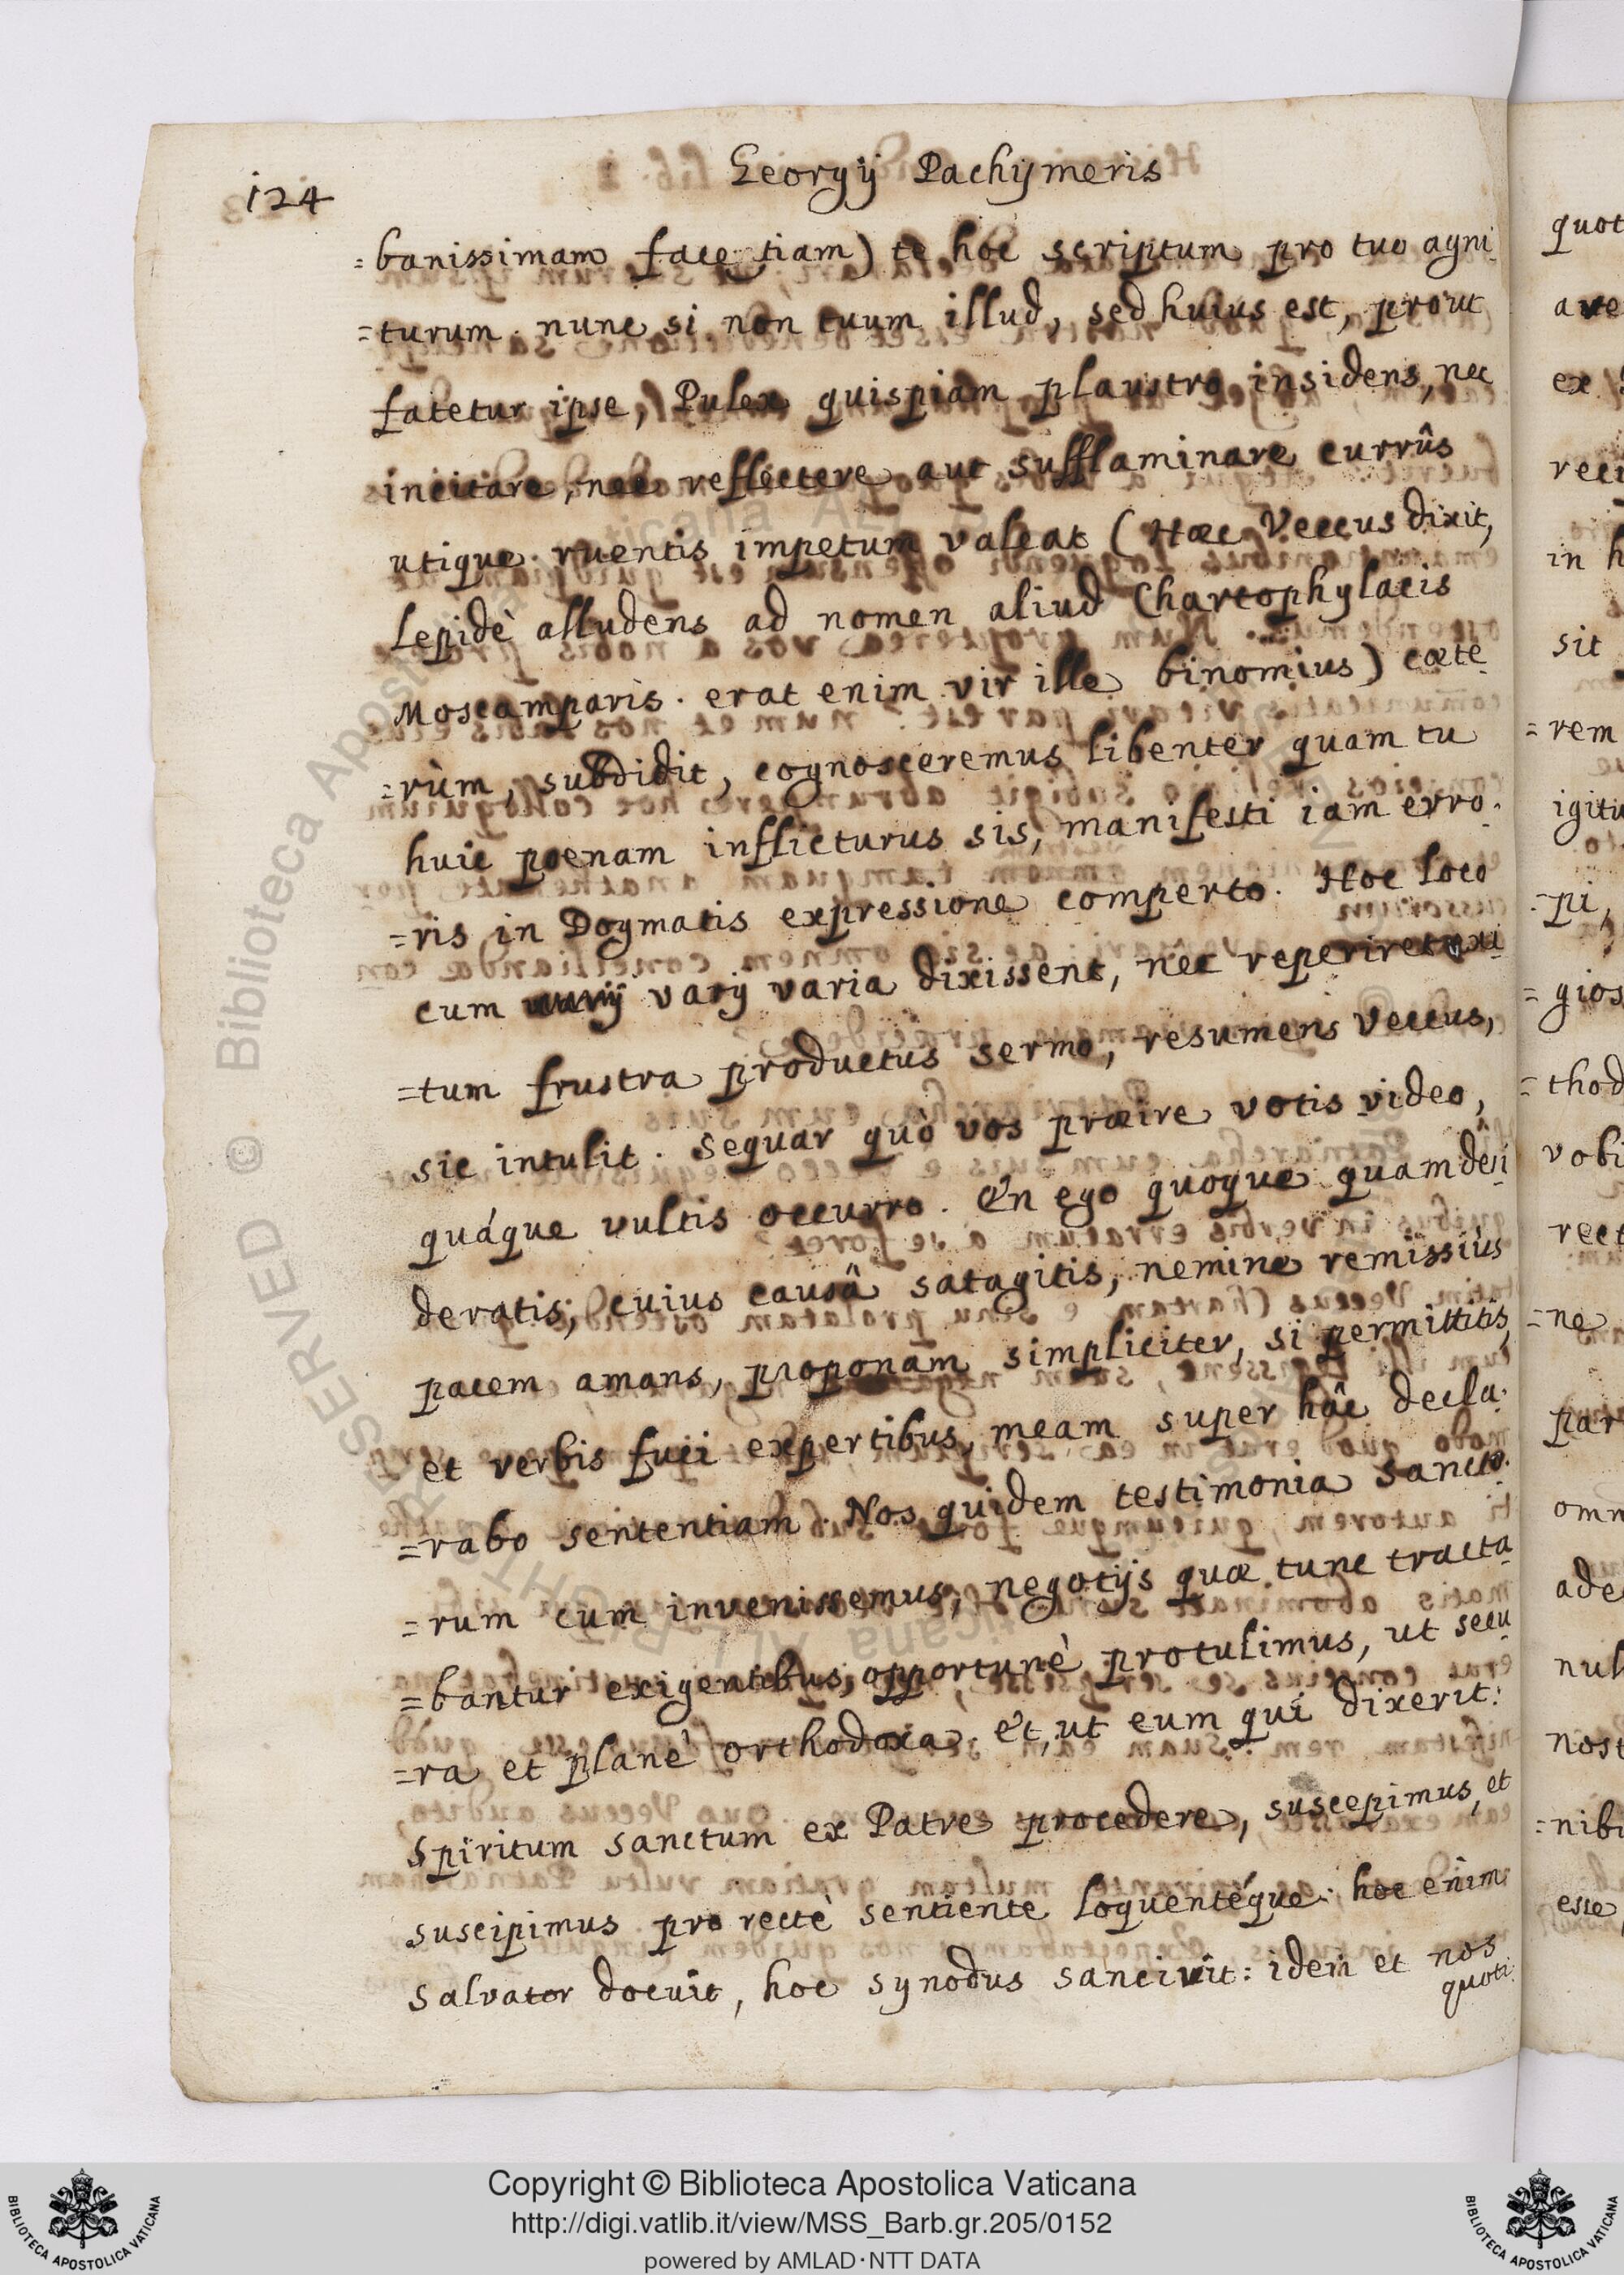 124
Georgij Pachymeris
=banissimam facetiam) te hoc scriptum pro tuo agni-
=turum. nunc si non tuum illud, sed huius est, prout
fatetur ipse, Pulex quispiam plaustro insidens, nec
incitare, nec reflectere aut sufflaminare currûs
utique ruentis impetum valeat (Hæc Veccus dixit,
Lepidè alludens ad nomen aliud Chartophylacis
Moscamparis. erat enim vir ille binomius) cæte-
=rùm, subdidit, cognosceremus libenter quam tu
huic poenam inflicturus sis, manifesti iam erro-
=ris in Dogmatis expressione comperto. Hoc loco
cum varij varia dixissent, nec reperiret exi-
=tum frustra productus sermo, resumens Veccus,
sic intulit. Sequar quò vos præire votis video,
quáque vultis occurro. En ego quoque quam desi-
deratis, cuius causâ satagitis, nemine remissiùs
pacem amans, proponam simpliciter, si permittitis,
et verbis fuci expertibus, meam super hâc decla-
=rabo sententiam. Nos quidem testimonia sancto-
=rum cum invenissemus, negotijs quæ tunc tracta-
=bantur exigentibus, opportunè protulimus, ut secu-
=ra et planè orthodoxa. et, ut eum qui dixerit:
Spiritum sanctum ex Patre procedere, suscepimus, et
suscipimus pro rectè sentiente loquentéque. hoc enim
Salvator docuit, hoc synodus sancivit: idem et nos
quoti-
quot
ave
ex
reci
in h
sit
=rem
igitu
=pi,
=gios
=thod
vobi
rect
=ne
par
omn
ade
nul
nost
=nibu
esse
© Biblioteca Apostolica Vaticana
ALL RIGHTS RESERVED
Copyright © Biblioteca Apostolica Vaticana
http://digi.vatlib.it/view/MSS_Barb.gr.205/0152
powered by AMLAD·NTT DATA
BIBLIOTECA APOSTOLICA VATICANA
BIBLIOTECA APOSTOLICA VATICANA